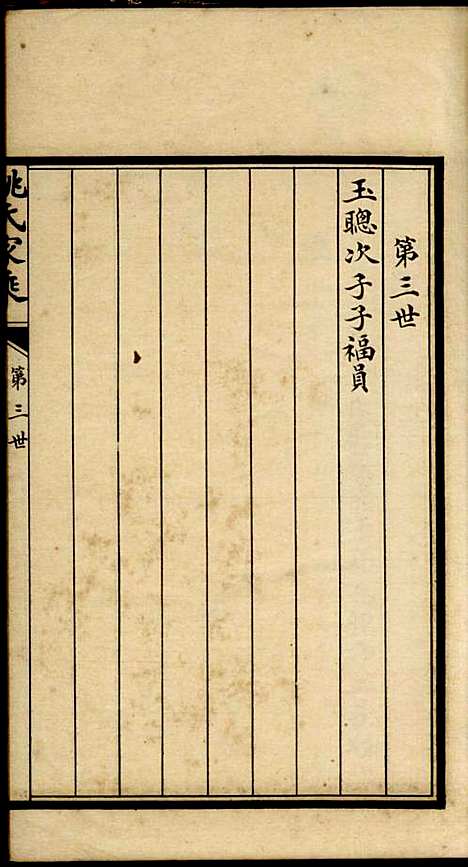 第三世
玉聰次子子福員
姚氏家乘
第三世